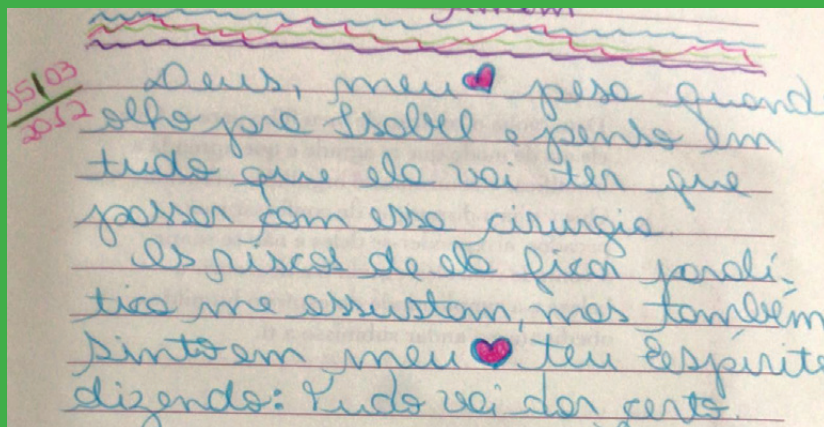 05/03
2012
Deus, meu ❤ pesa quand
olho pra Isabel e penso em
tudo que ela vai ter que
passar com essa cirurgia
Os riscos de ela ficar paralí-
tica me assustam, mas também
sinto em meu ❤ teu Espírito
dizendo: Tudo vai dar certo.